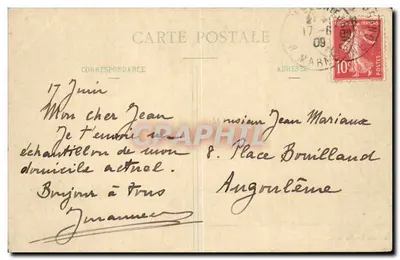 CARTE POSTALE
CORRESPONDANCE
ADRESSE
17-6
09
10
17 Juin
Mon cher Jean
Je t'envoie un
échantillon de mon
domicile actuel.
Bonjour à tous
Monsieur Jean Mariaux
8. Place Bouillaud
Angoulême
CPHRTIL